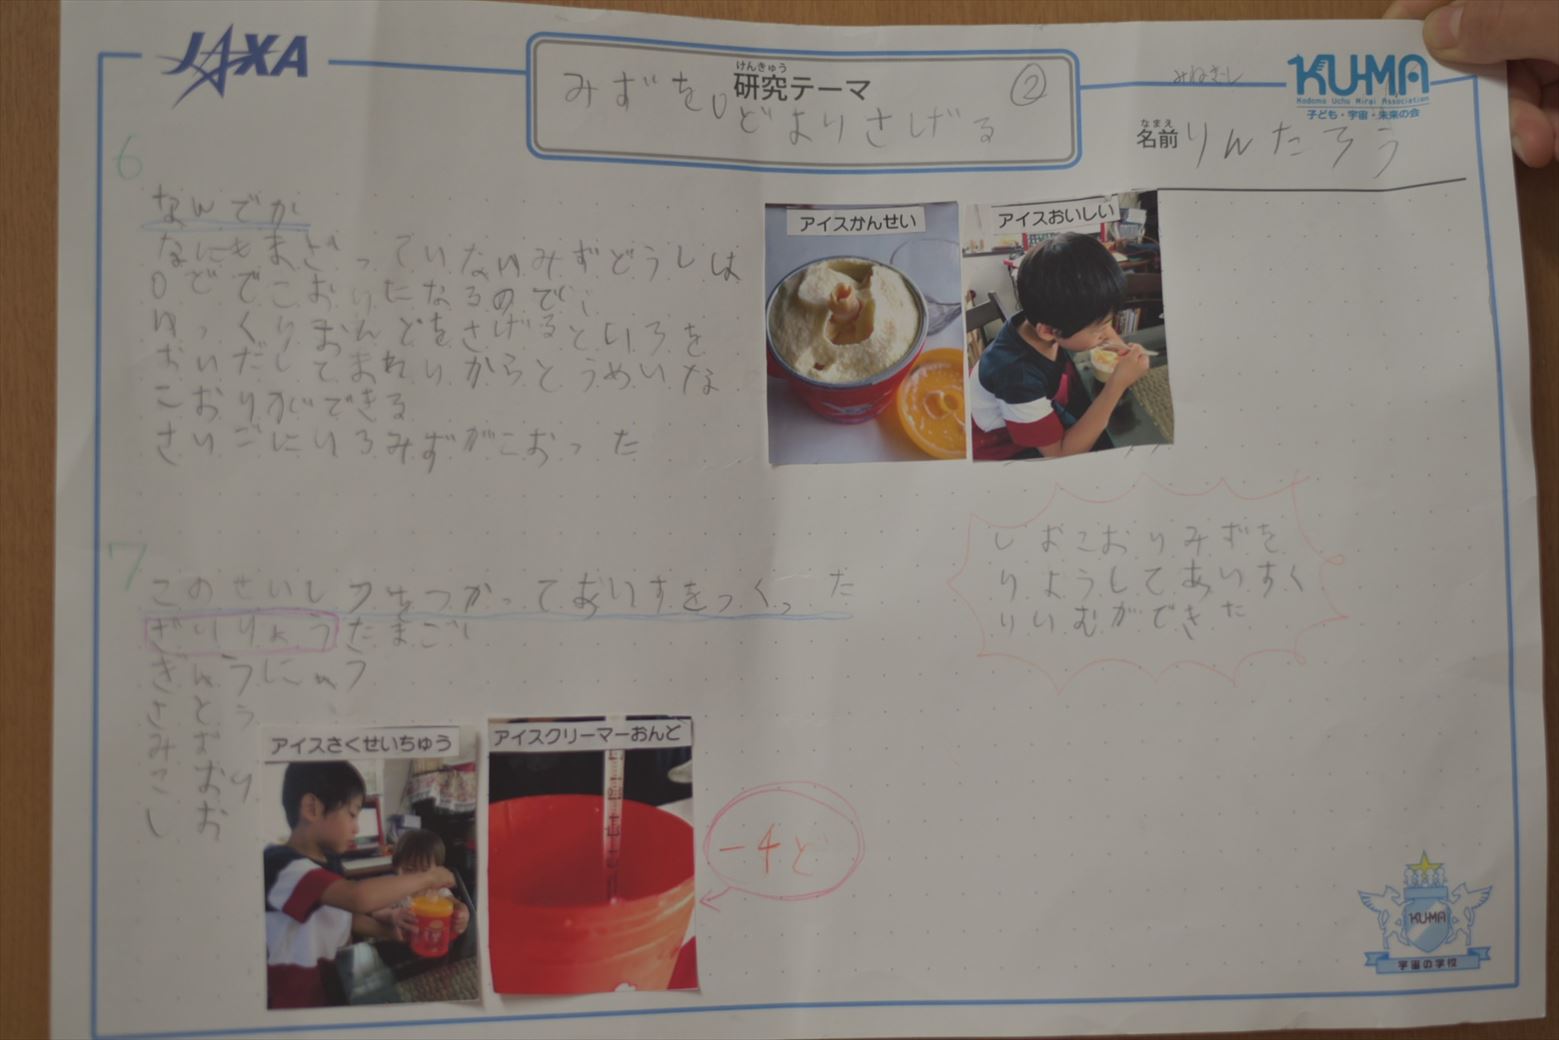 JAXA
けんきゅう
研究テーマ
みずを0どよりさげる
②
KU-MA
Kodomo Uchu Mirai Association
子ども・宇宙・未来の会
なまえ
名前 りんたろう
6
なんでか
なにもまざっていないみずどうしは
0どでこおりになるので、
ゆっくりおんどをさげるといろを
おいだしてまわりからとうめいな
こおりができる
さいごにいろみずがこおった
アイスかんせい
アイスおいしい
しおこおりみずを
りようしてあいすく
りいむができた
7
このせいしつをつかってあいすをつくった
ざいりょう たまご
ぎゅうにゅう
さとう
みず
こおり
しお
アイスさくせいちゅう
アイスクリーマーおんど
-4ど
KU-MA
宇宙の学校